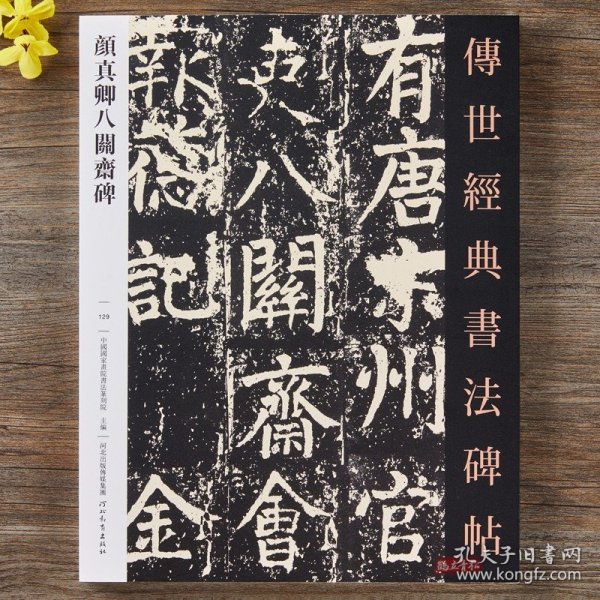 傳世經典書法碑帖
有唐宋州官
吏八關齋會
報德記金
顔真卿八關齋碑
129
中國國家畫院書法篆刻院 主編
河北出版傳媒集團
河北教育出版社
孔夫子旧書网
www.kongfz.com